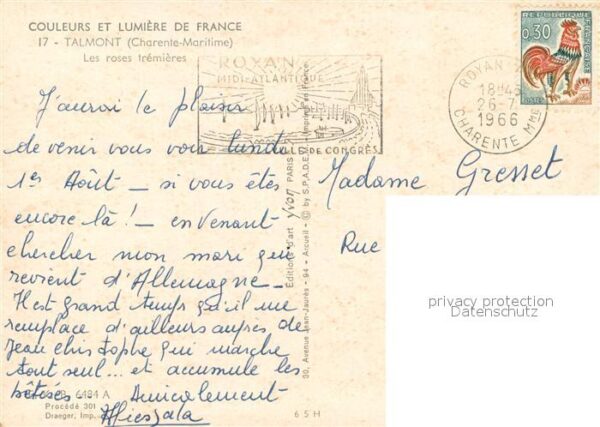 COULEURS ET LUMIÈRE DE FRANCE
17 - TALMONT (Charente-Maritime)
Les roses trémières
ROYAN
MIDI-ATLANTIQUE
VILLE DE CONGRÈS
REPUBLIQUE FRANÇAISE
0,30
POSTES
ROYAN
18H45
26-7
1966
CHARENTE Mme
J'aurai le plaisir
de venir vous voir lundi
1er Août - si vous êtes
encore là! - en venant
chercher mon mari qui
revient d'Allemagne -
Il est grand temps qu'il me
remplace d'ailleurs auprès de
Jean Christophe qui marche
tout seul... et accumule les
bêtises - Amicalement
Madame Gresset
Rue
Editions d'art yvon PARIS
30, Avenue Jean-Jaurès - 94 - Arcueil - © by S.P.A.D.E.M.
6484 A
Procédé 301
Draeger, Imp.
65H
privacy protection
Datenschutz